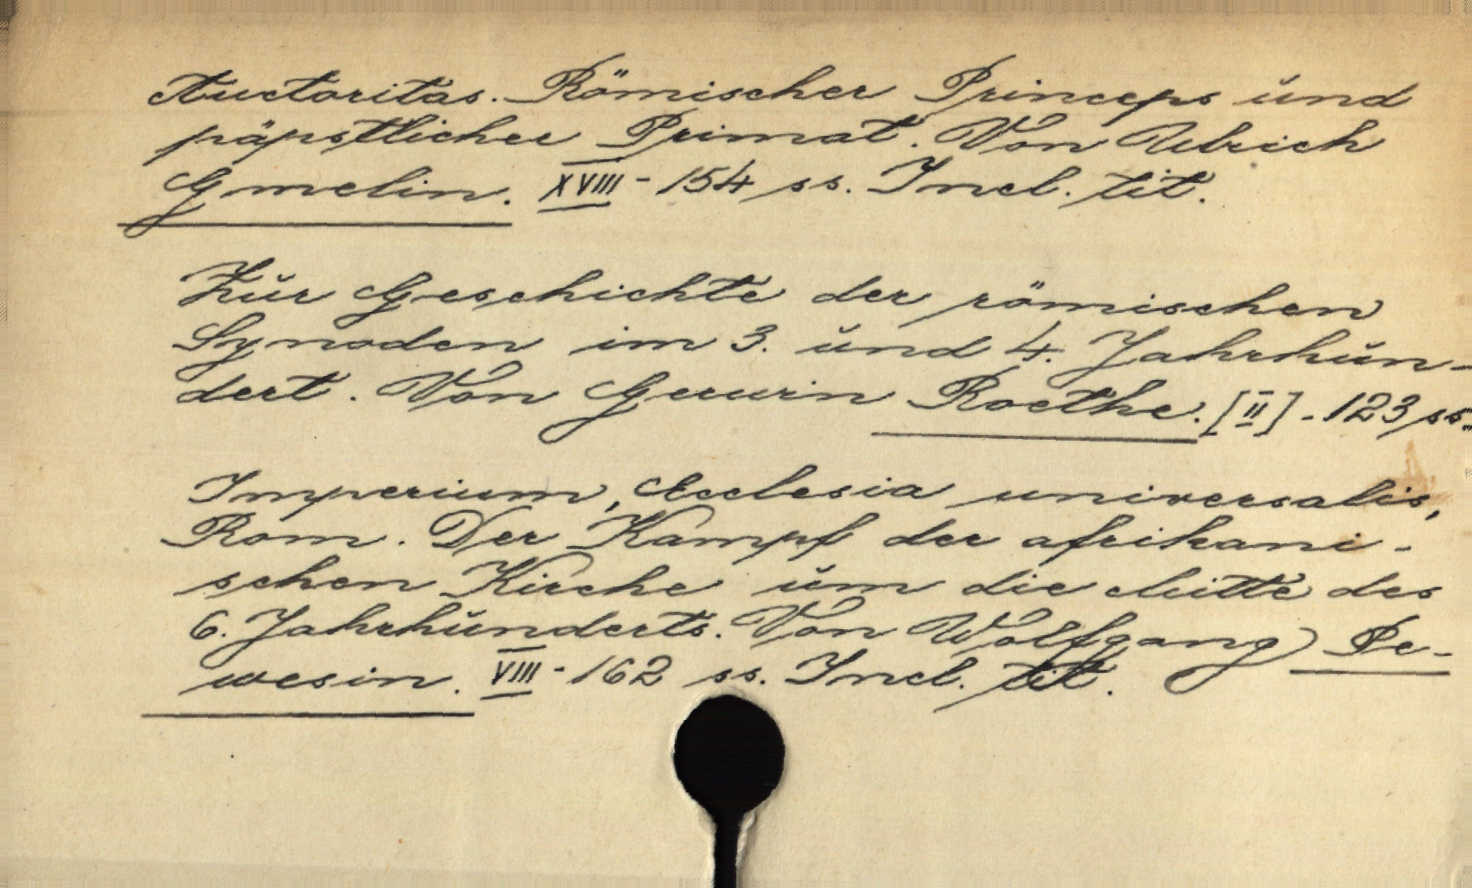 Auctoritas. Römischer Princeps ŭnd
päpstlicher Primat. Von Ulrich
Gmelin. XVIII - 154 ss. Incl. tit.
Zŭr Geschichte der römischen
Synoden im 3. ŭnd 4. Jahrhŭn-
dert. Von Gerwin Roethe. [II] - 123 ss.
Imperium, Ecclesia universalis,
Rom. Der Kampf der afrikani-
schen Kirche ŭm die Mitte des
6. Jahrhŭnderts. Von Wolfgang Pe-
wesin. VIII - 162 ss. Incl. tit.